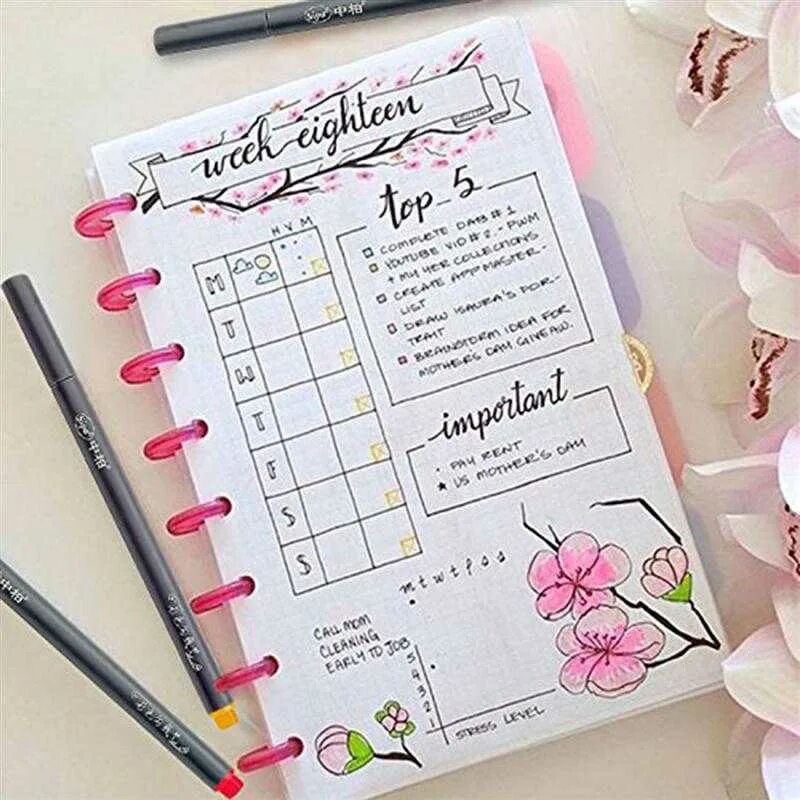 week eighteen
top 5
COMPLETE DAYS # 1
YOUTUBE VID # 2 - PWM
+ MY HER COLLECTIONS
CREATE APP MASTER-
LIST
DRAW ISAURA'S POR-
TRAIT
BRAINSTORM IDEA FOR
MOTHER'S DAY GIVEAW.
H V M
M
T
W
T
F
S
S
important
PAY RENT
US MOTHER'S DAY
m t w t f s s
CALL MOM
CLEANING
EARLY TO JOB
5
4
3
2
1
STRESS LEVEL
中柏
中柏
中柏